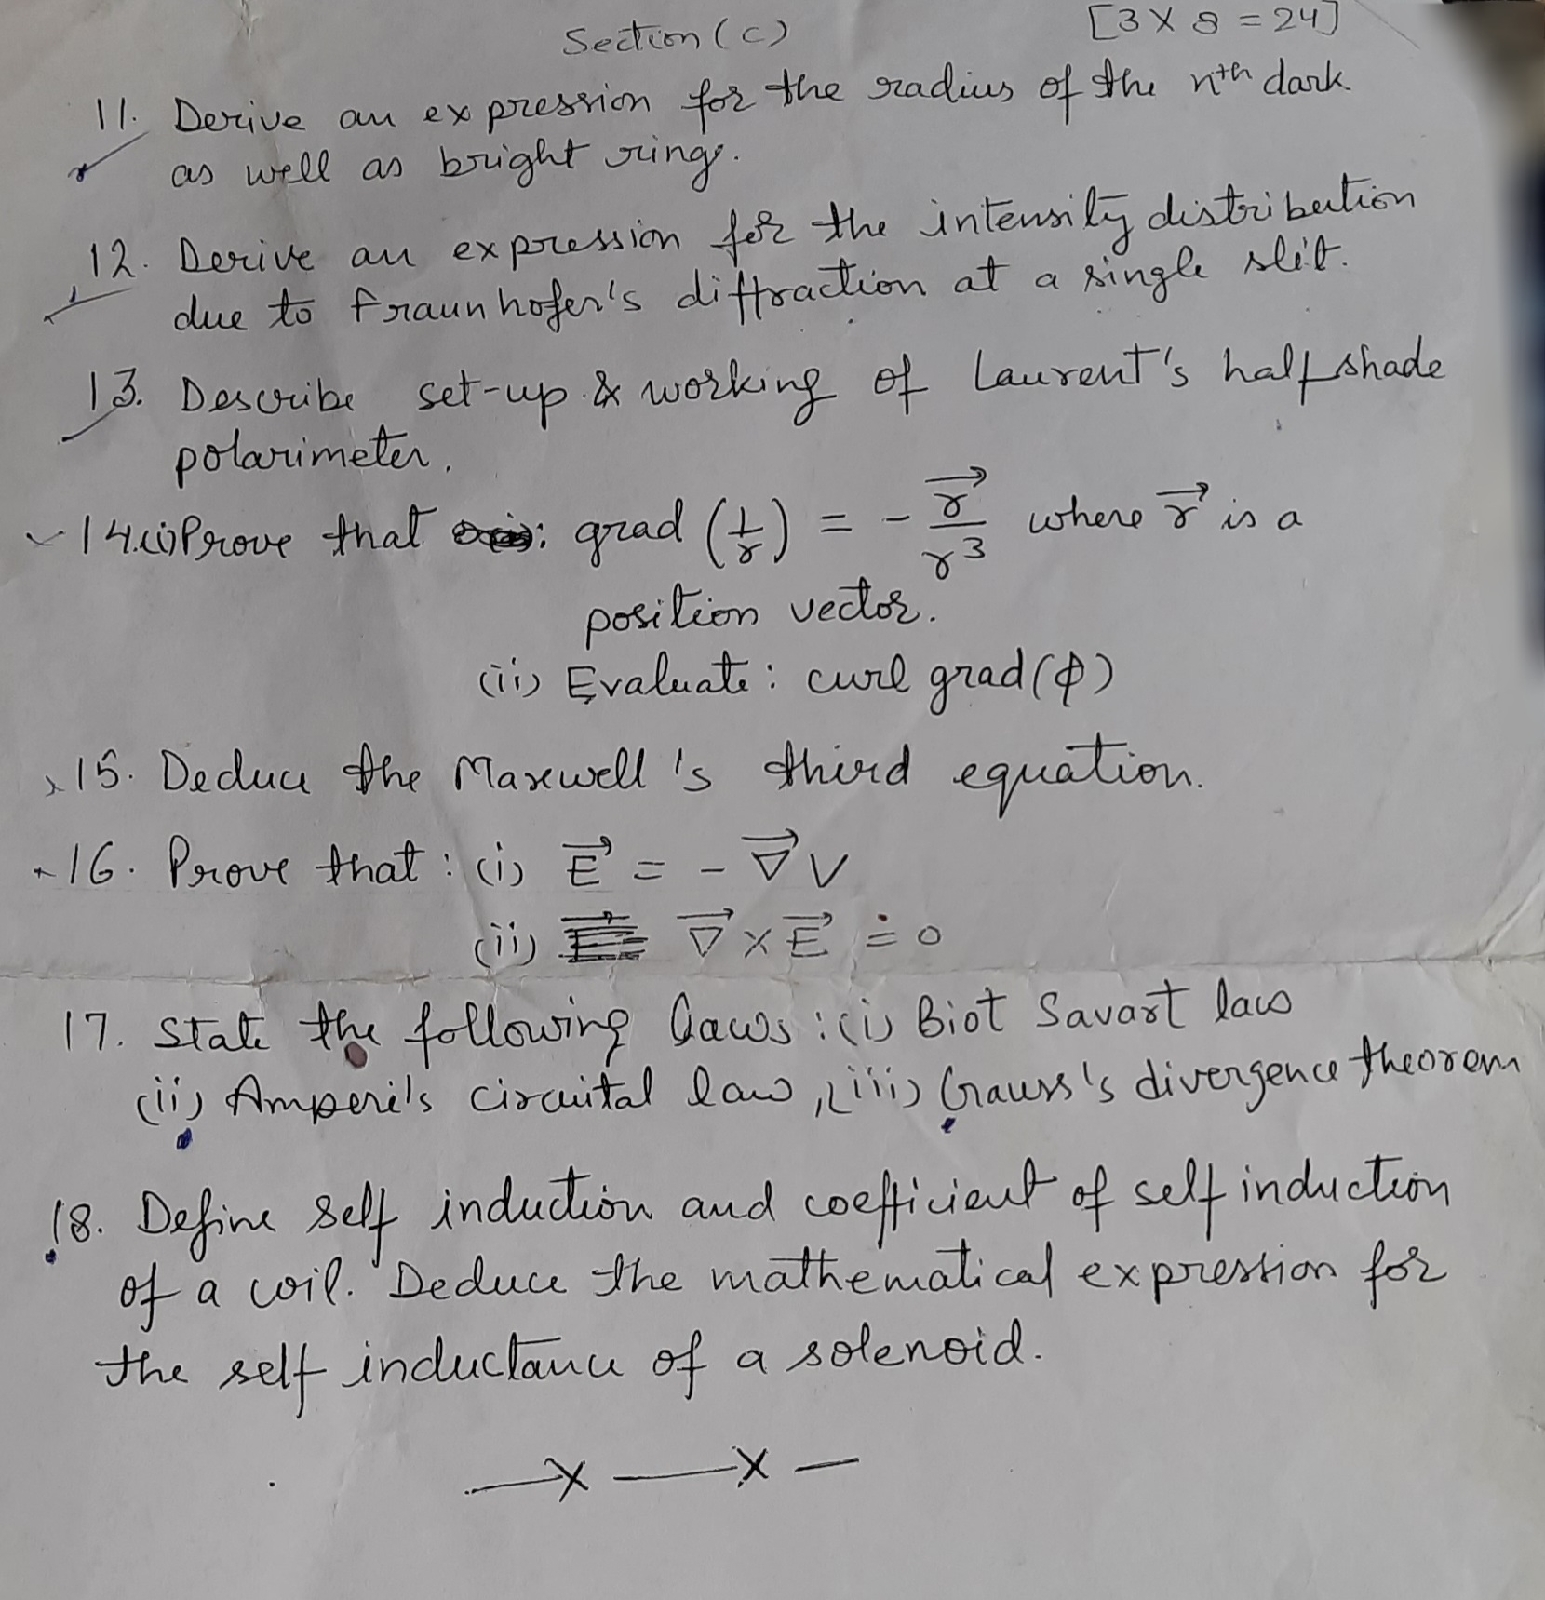 Section (c) [3 X 8 = 24]
11. Derive an expression for the radius of the nth dark
as well as bright rings.
12. Derive an expression for the intensity distribution
due to Fraunhofer's diffraction at a single slit.
13. Describe set-up & working of Laurent's half shade
polarimeter.
14.(i) Prove that : grad (1/r) = - r⃗/r³ where r⃗ is a
position vector.
(ii) Evaluate : curl grad (ϕ)
15. Deduce the Maxwell's third equation.
16. Prove that : (i) E⃗ = - ∇⃗ V
(ii) ∇⃗ X E⃗ = 0
17. State the following laws : (i) Biot Savart law
(ii) Ampere's circuital law, (iii) Gauss's divergence theorem
18. Define self induction and coefficient of self induction
of a coil. Deduce the mathematical expression for
the self inductance of a solenoid.
—X —X —